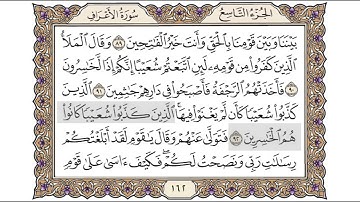 الجزء التاسع
سورة الأعراف
بَيْنَنَا وَبَيْنَ قَوْمِنَا بِالْحَقِّ وَأَنتَ خَيْرُ الْفَاتِحِينَ ٨٩ وَقَالَ الْمَلَأُ
الَّذِينَ كَفَرُوا مِن قَوْمِهِ لَئِنِ اتَّبَعْتُمْ شُعَيْبًا إِنَّكُمْ إِذًا لَّخَاسِرُونَ
٩٠ فَأَخَذَتْهُمُ الرَّجْفَةُ فَأَصْبَحُوا فِي دَارِهِمْ جَاثِمِينَ ٩١ الَّذِينَ
كَذَّبُوا شُعَيْبًا كَأَن لَّمْ يَغْنَوْا فِيهَا الَّذِينَ كَذَّبُوا شُعَيْبًا كَانُوا
هُمُ الْخَاسِرِينَ ٩٢ فَتَوَلَّىٰ عَنْهُمْ وَقَالَ يَا قَوْمِ لَقَدْ أَبْلَغْتُكُمْ
رِسَالَاتِ رَبِّي وَنَصَحْتُ لَكُمْ فَكَيْفَ آسَىٰ عَلَىٰ قَوْمٍ
١٦٢